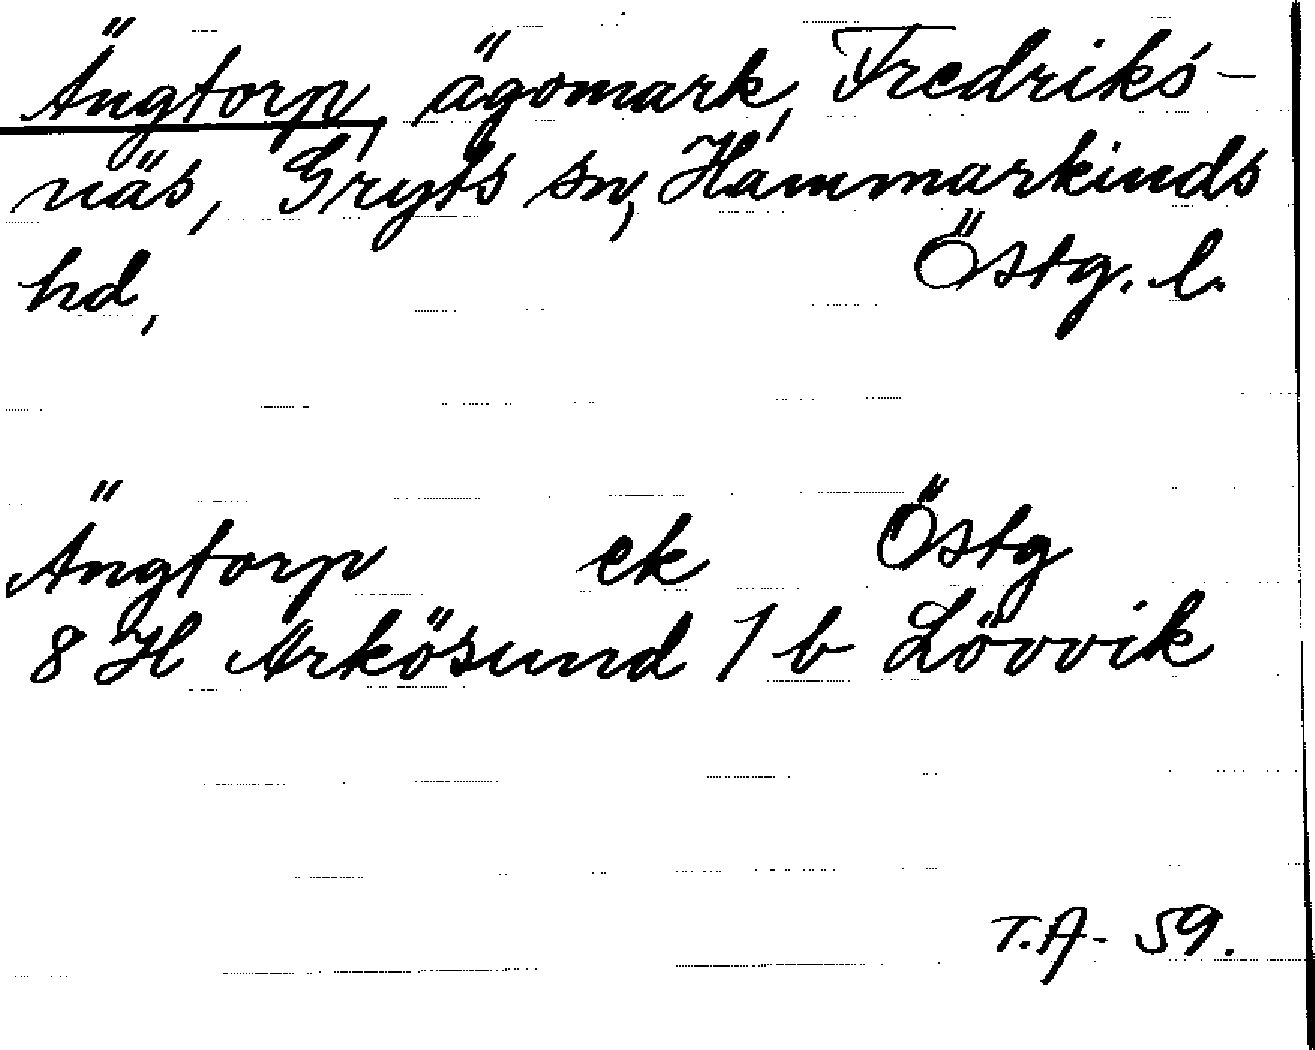 Ängtorp, ägomark, Fredriks-
näs, Gryts sn, Hammarkinds
hd, Östg. l.
Ängtorp ek Östg
8 H Arkösund 1 b Lövvik
T.A- 59.